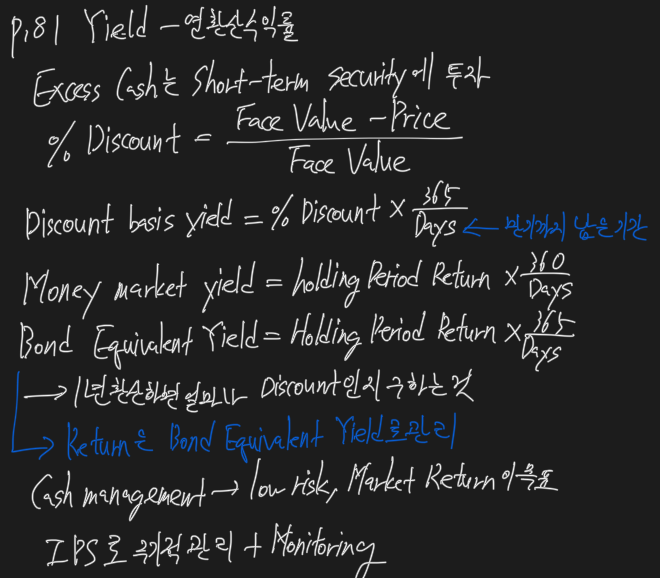 p.81 Yield – 연환산수익률
Excess Cash는 Short-term security에 투자
% Discount = (Face Value - Price) / Face Value
Discount basis yield = % Discount × 365/Days ← 만기까지 남은기간
Money market yield = holding Period Return × 360/Days
Bond Equivalent Yield = Holding Period Return × 365/Days
→ 1년환산하면 얼마나 Discount인지 구하는 것
→ Return은 Bond Equivalent Yield로 관리
Cash management → low risk, Market Return이 목표
IPS로 관리 + Monitoring